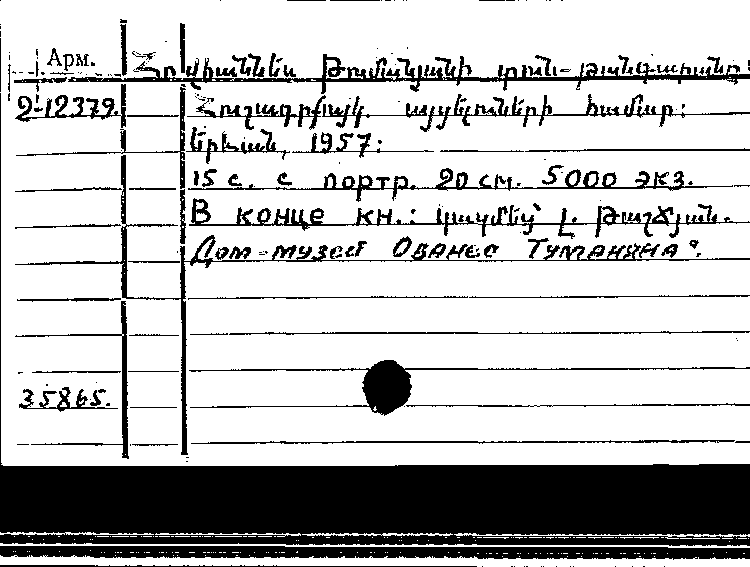 Арм.
Հովհաննես Թումանյանի տուն-թանգարանը:
9-12379. Հուշագրքույկ. այցելուների համար:
Երևան, 1957:
15 с. с портр. 20 см. 5000 экз.
В конце кн.: կազմեց՝ Լ. Թաղչյան.
Дом-музей Ованес Туманяна.
35865.